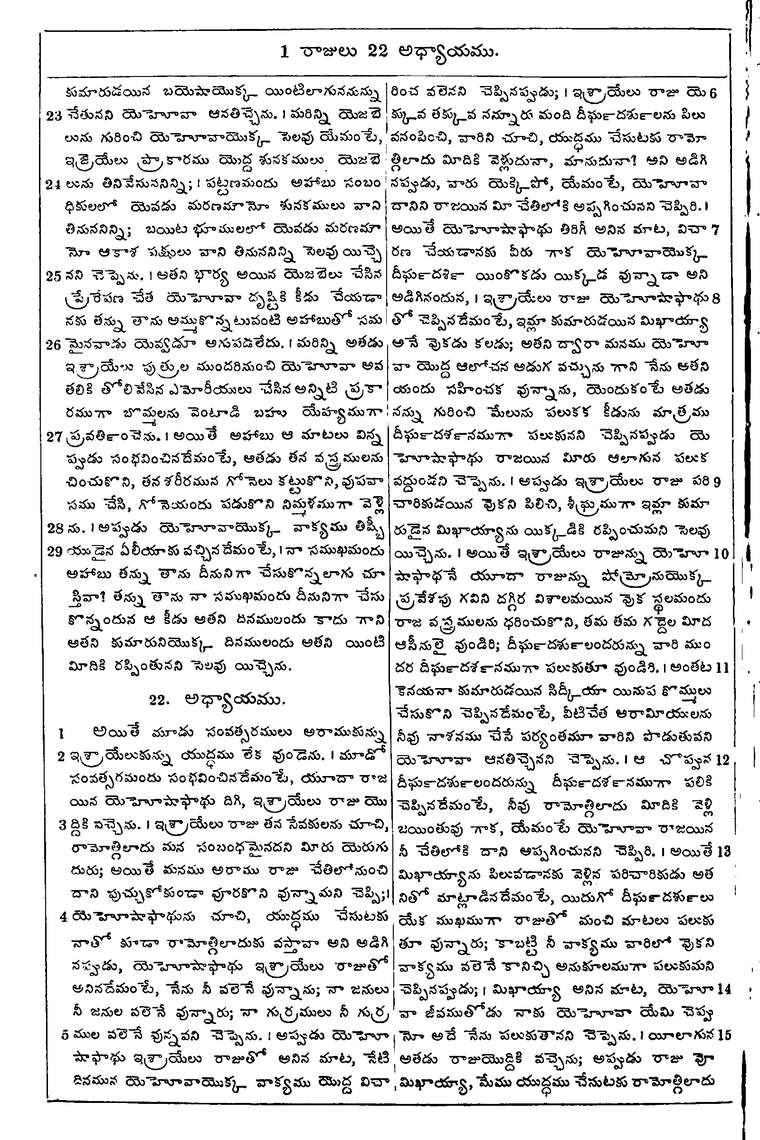 1 రాజులు 22 అధ్యాయము.
కుమారుడయిన బయెషాయొక్క యింటిలాగుననున్ను
23 చేతునని యెహోవా ఆనతిచ్చెను. । మరిన్ని యెజబె
లును గురించి యెహోవాయొక్క సెలవు యేమంటే,
ఇజ్రెయేలు ప్రాకారము యొద్ద శునకములు యెజబె
24 లును తినివేసుననిన్ని; । పట్టణమందు అహాబు సంబం
ధికులలో యెవడు మరణమౌనో శునకములు వాని
తినుననిన్ని; బయిట భూములలో యెవడు మరణమౌ
నో ఆకాశ పక్షులు వాని తినుననిన్ని సెలవు యిచ్చె
25 నని చెప్పెను. । అతని భార్య అయిన యెజబెలు చేసిన
ప్రేరేపణ చేత యెహోవా దృష్టికి కీడు చేయడా
నకు తన్ను తాను అమ్ముకొన్నటువంటి అహాబుతో సమ
26 మైనవాడు యెవ్వడూ అగుపడలేదు. । మరిన్ని అతడు
ఇశ్రాయేలు పుత్రుల ముందరినుంచి యెహోవా అవ
తలికి తోలివేసిన ఎమోరీయులు చేసిన అన్నిటి ప్రకా
రముగా బొమ్మలను వెంటాడి బహు యేహ్యముగా
27 ప్రవర్తించెను. । అయితే అహాబు ఆ మాటలు విన్న
ప్పుడు సంభవించినదేమంటే, అతడు తన వస్త్రములను
చించుకొని, తన శరీరమున గోనెలు కట్టుకొని, వుపవా
సము చేసి, గోనెయందు పడుకొని నిమ్మళముగా వెళ్లె
28 ను. । అప్పుడు యెహోవాయొక్క వాక్యము తిష్బీ
29 యుడైన ఏలీయాకు వచ్చినదేమంటే, । నా సముఖమందు
అహాబు తన్ను తాను దీనునిగా చేసుకొన్నలాగు చూ
స్తివా? తన్ను తాను నా సముఖమందు దీనునిగా చేసు
కొన్నందున ఆ కీడు అతని దినములందు కాదు గాని
అతని కుమారునియొక్క దినములందు అతని యింటి
మీదికి రప్పింతునని సెలవు యిచ్చెను.
22. అధ్యాయము.
1 అయితే మూడు సంవత్సరములు అరాముకున్ను
2 ఇశ్రాయేలుకున్ను యుద్ధము లేక వుండెను. । మూడో
సంవత్సరమందు సంభవించినదేమంటే, యూదా రాజ
యిన యెహోషాఫాథు దిగి, ఇశ్రాయేలు రాజు యొ
3 ద్దికి వచ్చెను. । ఇశ్రాయేలు రాజు తన సేవకులను చూచి,
రామోత్గిలాదు మన సంబంధమైనదని మీరు యెరుగు
దురు; అయితే మనము అరాము రాజు చేతిలోనుంచి
దాని పుచ్చుకోకుండా వూరకొని వున్నామని చెప్పి;।
4 యెహోషాఫాథును చూచి, యుద్ధము చేసుటకు
నాతో కూడా రామోత్గిలాదుకు వస్తావా అని అడిగి
నప్పుడు, యెహోషాఫాథు ఇశ్రాయేలు రాజుతో
అనినదేమంటే, నేను నీ వలెనే వున్నాను; నా జనులు
నీ జనుల వలెనే వున్నారు; నా గుర్రములు నీ గుర్ర
5 ముల వలెనే వున్నవని చెప్పెను. । అప్పుడు యెహో
షాఫాథు ఇశ్రాయేలు రాజుతో అనిన మాట, నేటి
దినమున యెహోవాయొక్క వాక్యము యొద్ద విచా
రించ వలెనని చెప్పినప్పుడు; । ఇశ్రాయేలు రాజు యె 6
క్కువ తక్కువ నన్నూరు మంది దీర్ఘదర్శులను పిలు
వనంపించి, వారిని చూచి, యుద్ధము చేసుటకు రామో
త్గిలాదు మీదికి వెళ్లుదునా, మానుదునా? అని అడిగి
నప్పుడు, వారు యెక్కిపో, యేమంటే, యెహోవా
దానిని రాజయిన మీ చేతిలోకి అప్పగించునని చెప్పిరి. ।
అయితే యెహోషాఫాథు తిరిగీ అనిన మాట, విచా 7
రణ చేయడానకు వీరు గాక యెహోవాయొక్క
దీర్ఘదర్శి యింకొకడు యిక్కడ వున్నాడా అని
అడిగినందున, । ఇశ్రాయేలు రాజు యెహోషాఫాథు 8
తో చెప్పినదేమంటే, ఇమ్లా కుమారుడయిన మిఖాయ్యా
అనే వొకడు కలడు; అతని ద్వారా మనము యెహో
వా యొద్ద ఆలోచన అడుగ వచ్చును గాని నేను అతని
యందు సహించక వున్నాను, యెందుకంటే అతడు
నన్ను గురించి మేలును పలుకక కీడును మాత్రము
దీర్ఘదర్శనముగా పలుకునని చెప్పినప్పుడు యె
హోషాఫాథు రాజయిన మీరు ఆలాగున పలుక
వద్దుండని చెప్పెను. । అప్పుడు ఇశ్రాయేలు రాజు పరి 9
చారికుడయిన వొకని పిలిచి, శీఘ్రముగా ఇమ్లా కుమా
రుడైన మిఖాయ్యాను యిక్కడికి రప్పించుమని సెలవు
యిచ్చెను. । అయితే ఇశ్రాయేలు రాజున్ను యెహో 10
షాఫాథనే యూదా రాజున్ను షోమ్రోనుయొక్క
ప్రవేశపు గవిని దగ్గిర విశాలమయిన వొక స్థలమందు
రాజ వస్త్రములను ధరించుకొని, తమ తమ గద్దెల మీద
ఆసీనులై వుండిరి; దీర్ఘదర్శులందరున్ను వారి ముం
దర దీర్ఘదర్శనముగా పలుకుతూ వుండిరి. । అంతట 11
కెనయనా కుమారుడయిన సిద్కీయా యినుప కొమ్ములు
చేసుకొని చెప్పినదేమంటే, వీటిచేత అరామీయులను
నీవు నాశనము చేసే పర్యంతమూ వారిని పొడుతువని
యెహోవా ఆనతిచ్చెనని చెప్పెను. । ఆ చొప్పున 12
దీర్ఘదర్శులందరున్ను దీర్ఘదర్శనముగా పలికి
చెప్పినదేమంటే, నీవు రామోత్గిలాదు మీదికి వెళ్లి
బయింతువు గాక, యేమంటే యెహోవా రాజయిన
నీ చేతిలోకి దాని అప్పగించునని చెప్పిరి. । అయితే 13
మిఖాయ్యాను పిలువడానకు వెళ్లిన పరిచారికుడు అత
నితో మాట్లాడినదేమంటే, యిదుగో దీర్ఘదర్శులు
యేక ముఖముగా రాజుతో మంచి మాటలు పలుకు
తూ వున్నారు; కాబట్టి నీ వాక్యము వారిలో వొకని
వాక్యము వలెనే కానిచ్చి అనుకూలముగా పలుకుమని
చెప్పినప్పుడు; । మిఖాయ్యా అనిన మాట, యెహో 14
వా జీవముతోడు నాకు యెహోవా యేమి చెప్పు
నో అదే నేను పలుకుతానని చెప్పెను. । యీలాగున 15
అతడు రాజుయొద్దికి వచ్చెను; అప్పుడు రాజు వో
మిఖాయ్యా, మేము యుద్ధము చేసుటకు రామోత్గిలాదు